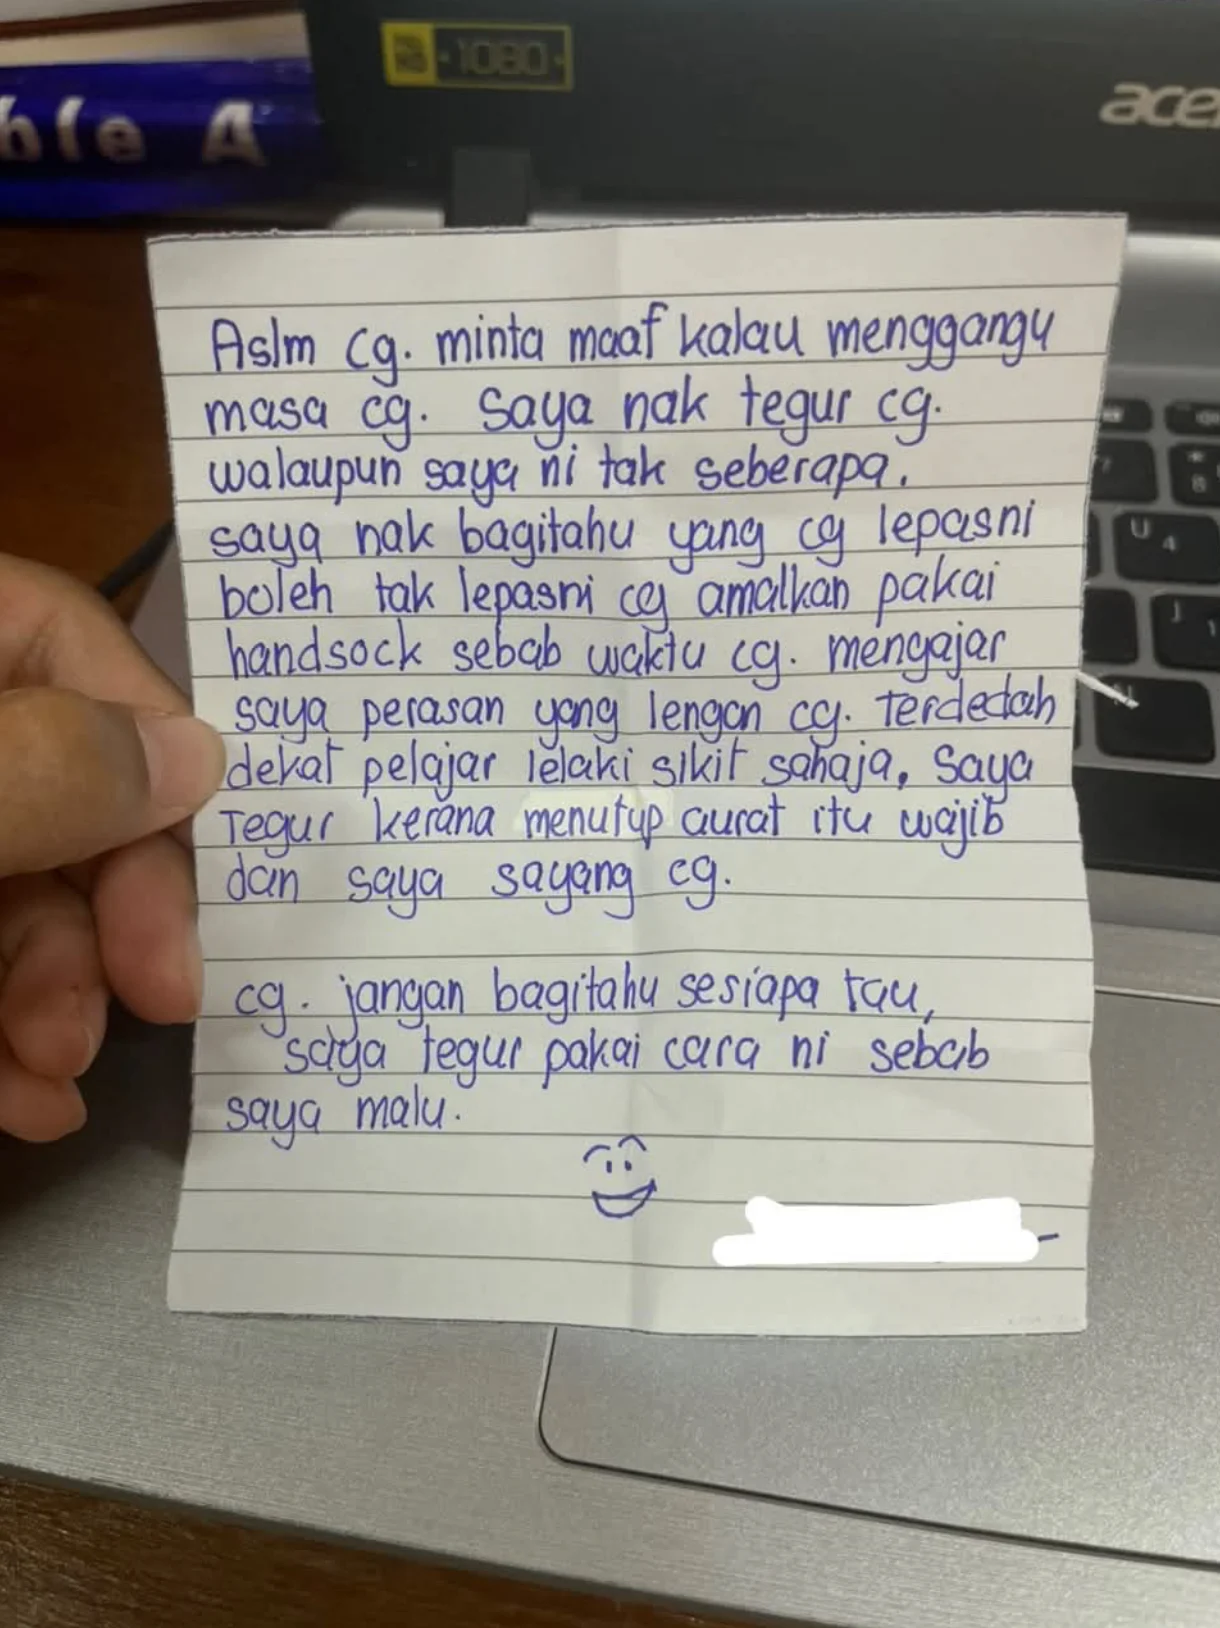 ble A
1080
acer
Aslm cg. minta maaf kalau menggangu
masa cg. Saya nak tegur cg.
walaupun saya ni tak seberapa.
saya nak bagitahu yang cg lepasni
boleh tak lepasni cg amalkan pakai
handsock sebab waktu cg. mengajar
saya perasan yang lengan cg. Terdedah
dekat pelajar lelaki sikit sahaja, Saya
Tegur kerana menutup aurat itu wajib
dan saya sayang cg.
cg. jangan bagitahu sesiapa tau,
saya tegur pakai cara ni sebab
saya malu.